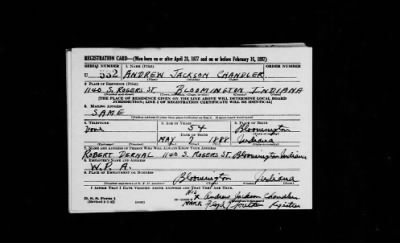 REGISTRATION CARD—(Men born on or after April 28, 1877 and on or before February 16, 1897)
SERIAL NUMBER 1. NAME (Print) ORDER NUMBER
U 552 ANDREW JACKSON CHANDLER
2. PLACE OF RESIDENCE (Print)
1140 S. ROGERS ST. BLOOMINGTON INDIANA
[THE PLACE OF RESIDENCE GIVEN ON THE LINE ABOVE WILL DETERMINE LOCAL BOARD
JURISDICTION; LINE 2 OF REGISTRATION CERTIFICATE WILL BE IDENTICAL]
3. MAILING ADDRESS
SAME
4. TELEPHONE 5. AGE IN YEARS 6. PLACE OF BIRTH
none 54 Bloomington
DATE OF BIRTH
MAY 2 1888 Indiana
7. NAME AND ADDRESS OF PERSON WHO WILL ALWAYS KNOW YOUR ADDRESS
ROBERT 1140 S. ROGERS ST. Bloomington Indiana
8. EMPLOYER'S NAME AND ADDRESS
W.P.A.
9. PLACE OF EMPLOYMENT OR BUSINESS
Bloomington Indiana
I AFFIRM THAT I HAVE VERIFIED ABOVE ANSWERS AND THAT THEY ARE TRUE.
HIS
X Andrew Jackson Chandler
D. S. S. Form 1
MARK Register